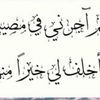 م آجرني في مصيب
أخلف لي خيرا من